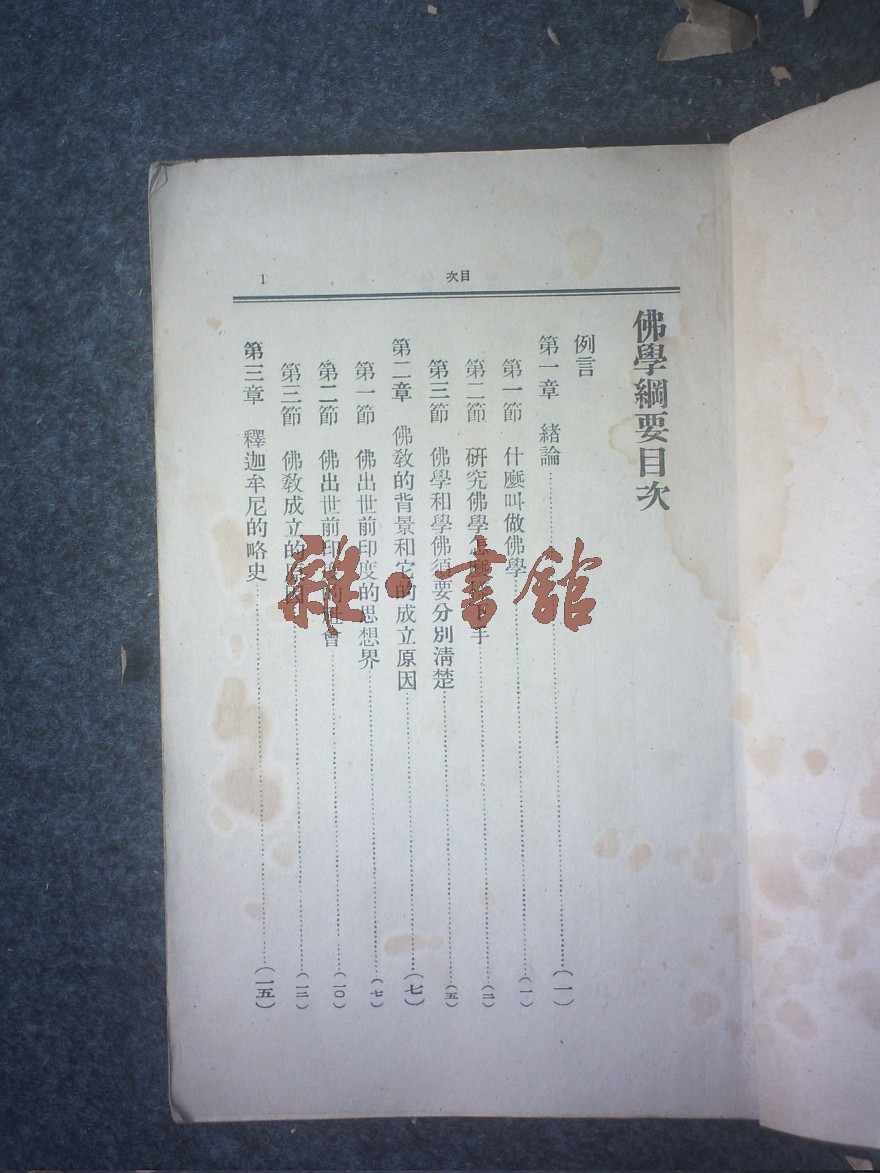 目次
1
佛學綱要目次
例言
第一章 緒論……(一)
第一節 什麼叫做佛學……(一)
第二節 研究佛學怎麼樣下手……(二)
第三節 佛學和學佛須要分別清楚……(五)
第二章 佛敎的背景和它的成立原因……(七)
第一節 佛出世前印度的思想界……(七)
第二節 佛出世前印度的社會……(一〇)
第三節 佛敎成立的原因……(一二)
第三章 釋迦牟尼的略史……(一五)
雜·書館